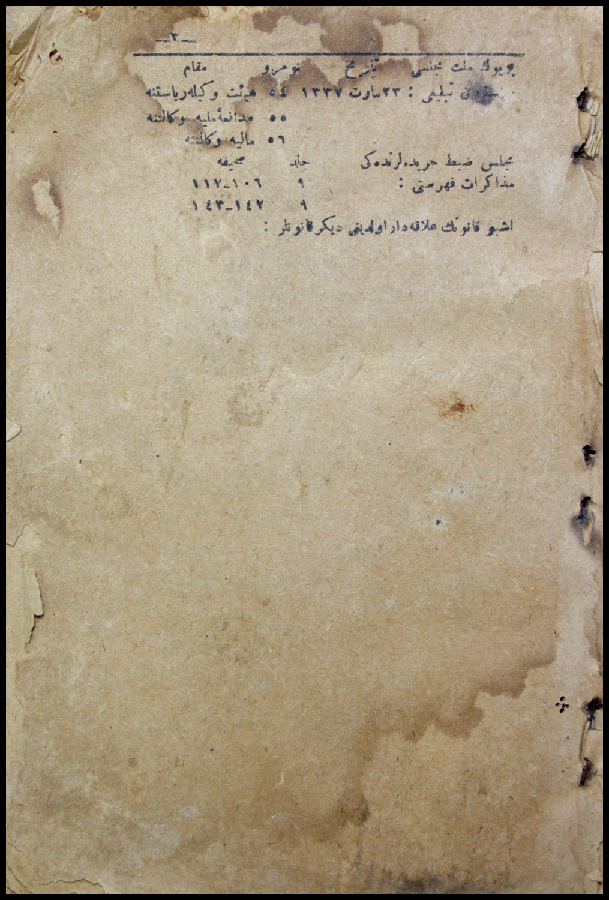 ـ ٣ ـ
بيوك ملت مجلسی تاريخ نومرو مقام
تبليغی : ٢٣ مارت ١٣٣٧ ٥٤ هيئت وكيله رياستنه
٥٥ مدافعۀ مليه وكالتنه
٥٦ ماليه وكالتنه
مجلس ضبط جريده‌لرنده‌كی جلد صحيفه
مذاكرات فهرستی : ٩ ١٠٦ـ١١٧
٩ ١٤٢ـ١٤٣
اشبو قانونك علاقه‌دار اولديغی ديكر قانونلر :